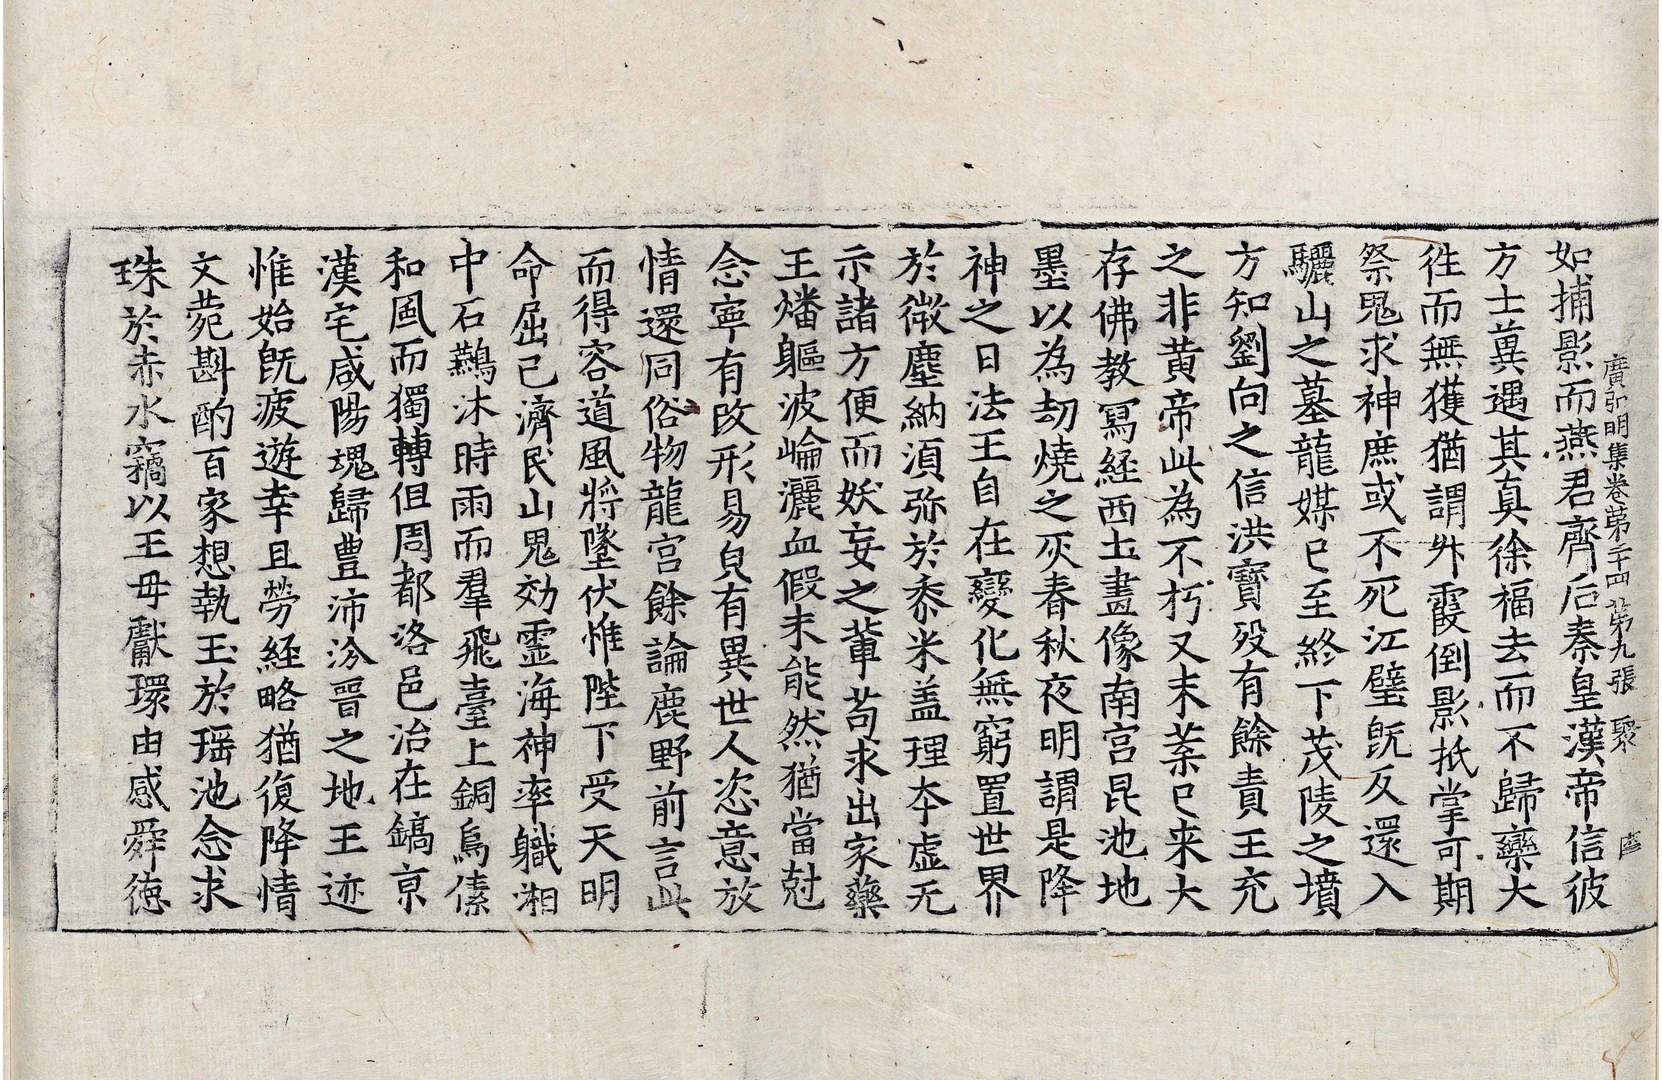 如捕影而燕君齊后秦皇漢帝信彼
廣弘明集卷第二十四 第九張 聚
方士冀遇其真徐福去而不歸欒大
徃而無獲猶謂升霞倒影抵掌可期
祭鬼求神庶或不死江璧旣反還入
驪山之墓龍媒已至終下茂陵之墳
方知劉向之信洪寶殁有餘責王充
之非黄帝此為不朽又末葉已来大
存佛教冩経西土畫像南宫昆池地
墨以為劫燒之灰春秋夜明謂是降
神之日法王自在變化無窮置世界
於微塵納湏弥於黍米盖理夲虚无
示諸方便而妖妄之輩苟求出家藥
王燔軀波崘灑血假未能然猶當尅
念寧有改形易皃有異世人恣意放
情還同俗物龍宫餘論鹿野前言此
而得容道風將墜伏惟陛下受天明
命屈己濟民山鬼効靈海神率軄湘
中石鷰沐時雨而羣飛臺上銅烏傃
和風而獨轉但周都洛邑治在鎬京
漢宅咸陽魂歸豊沛汾晉之地王迹
惟始旣疲遊幸且勞経略猶復降情
文苑斟酌百家想執玉於瑶池念求
珠於赤水竊以王母獻環由感舜徳